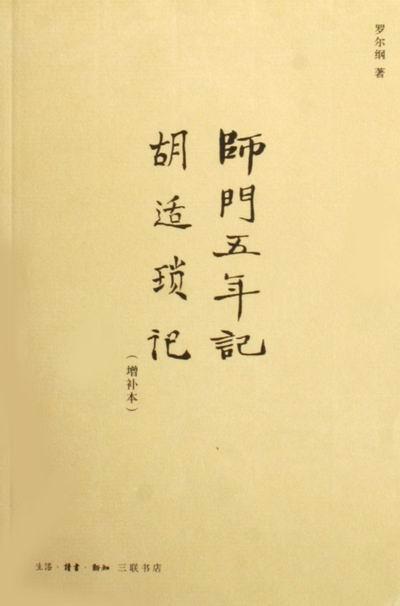 罗尔纲 著
師門五年記
胡适琐记
（增补本）
生活·讀書·新知 三联书店